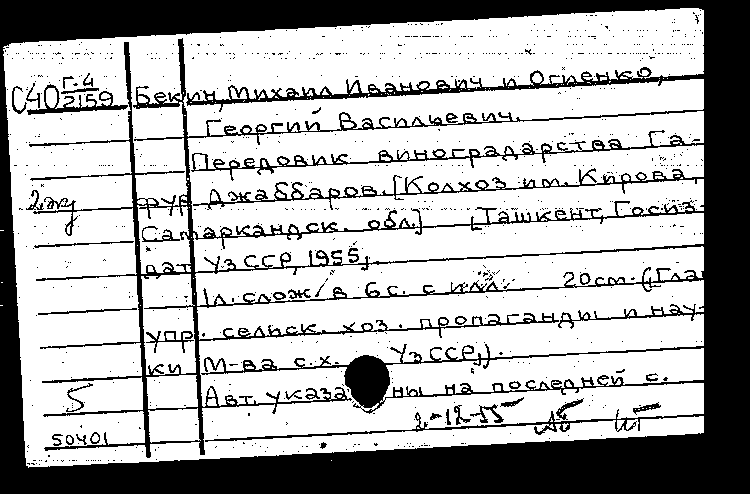 С40 Г.4/2159 Бекин, Михаил Иванович и Огиенко,
Георгий Васильевич.
Передовик виноградарства Га-
2.экз
фур Джаббаров. [Колхоз им. Кирова,
Самаркандск. обл.] [Ташкент, Госиз-
дат УзССР, 1955].
1л. слож. в 6с. с илл. 20см. (Глав
упр. сельск. хоз. пропаганды и нау-
ки М-ва с.х. УзССР).
5 Авт. указаны на последней с.
2-12-55
50401